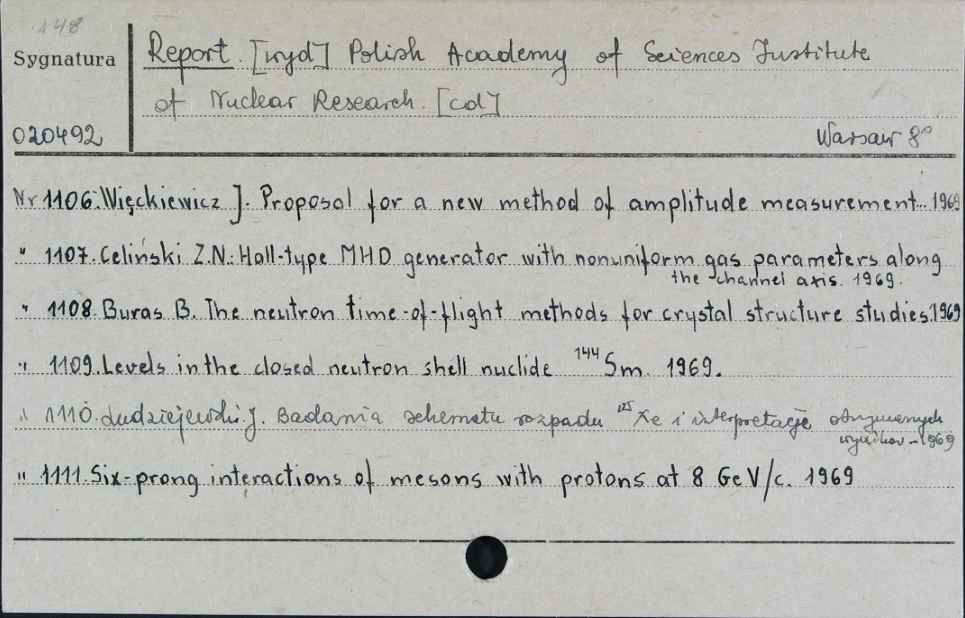 148
Sygnatura
Report. [wyd] Polish Academy of Sciences Institute
of Nuclear Research. [cd]
020492
Warsaw 8°
Nr 1106. Więckiewicz J. Proposal for a new method of amplitude measurement. 1969
" 1107. Celiński Z.N.: Hall-type MHD generator with nonuniform gas parameters along
the channel axis. 1969.
" 1108. Buras B. The neutron time-of-flight methods for crystal structure studies. 1969
" 1109. Levels in the closed neutron shell nuclide ¹⁴⁴Sm. 1969.
" 1110. Ludziejewski J. Badania schematu rozpadu ¹²⁵Xe i interpretacja otrzymanych
wyników - 1969
" 1111. Six-prong interactions of mesons with protons at 8 GeV/c. 1969